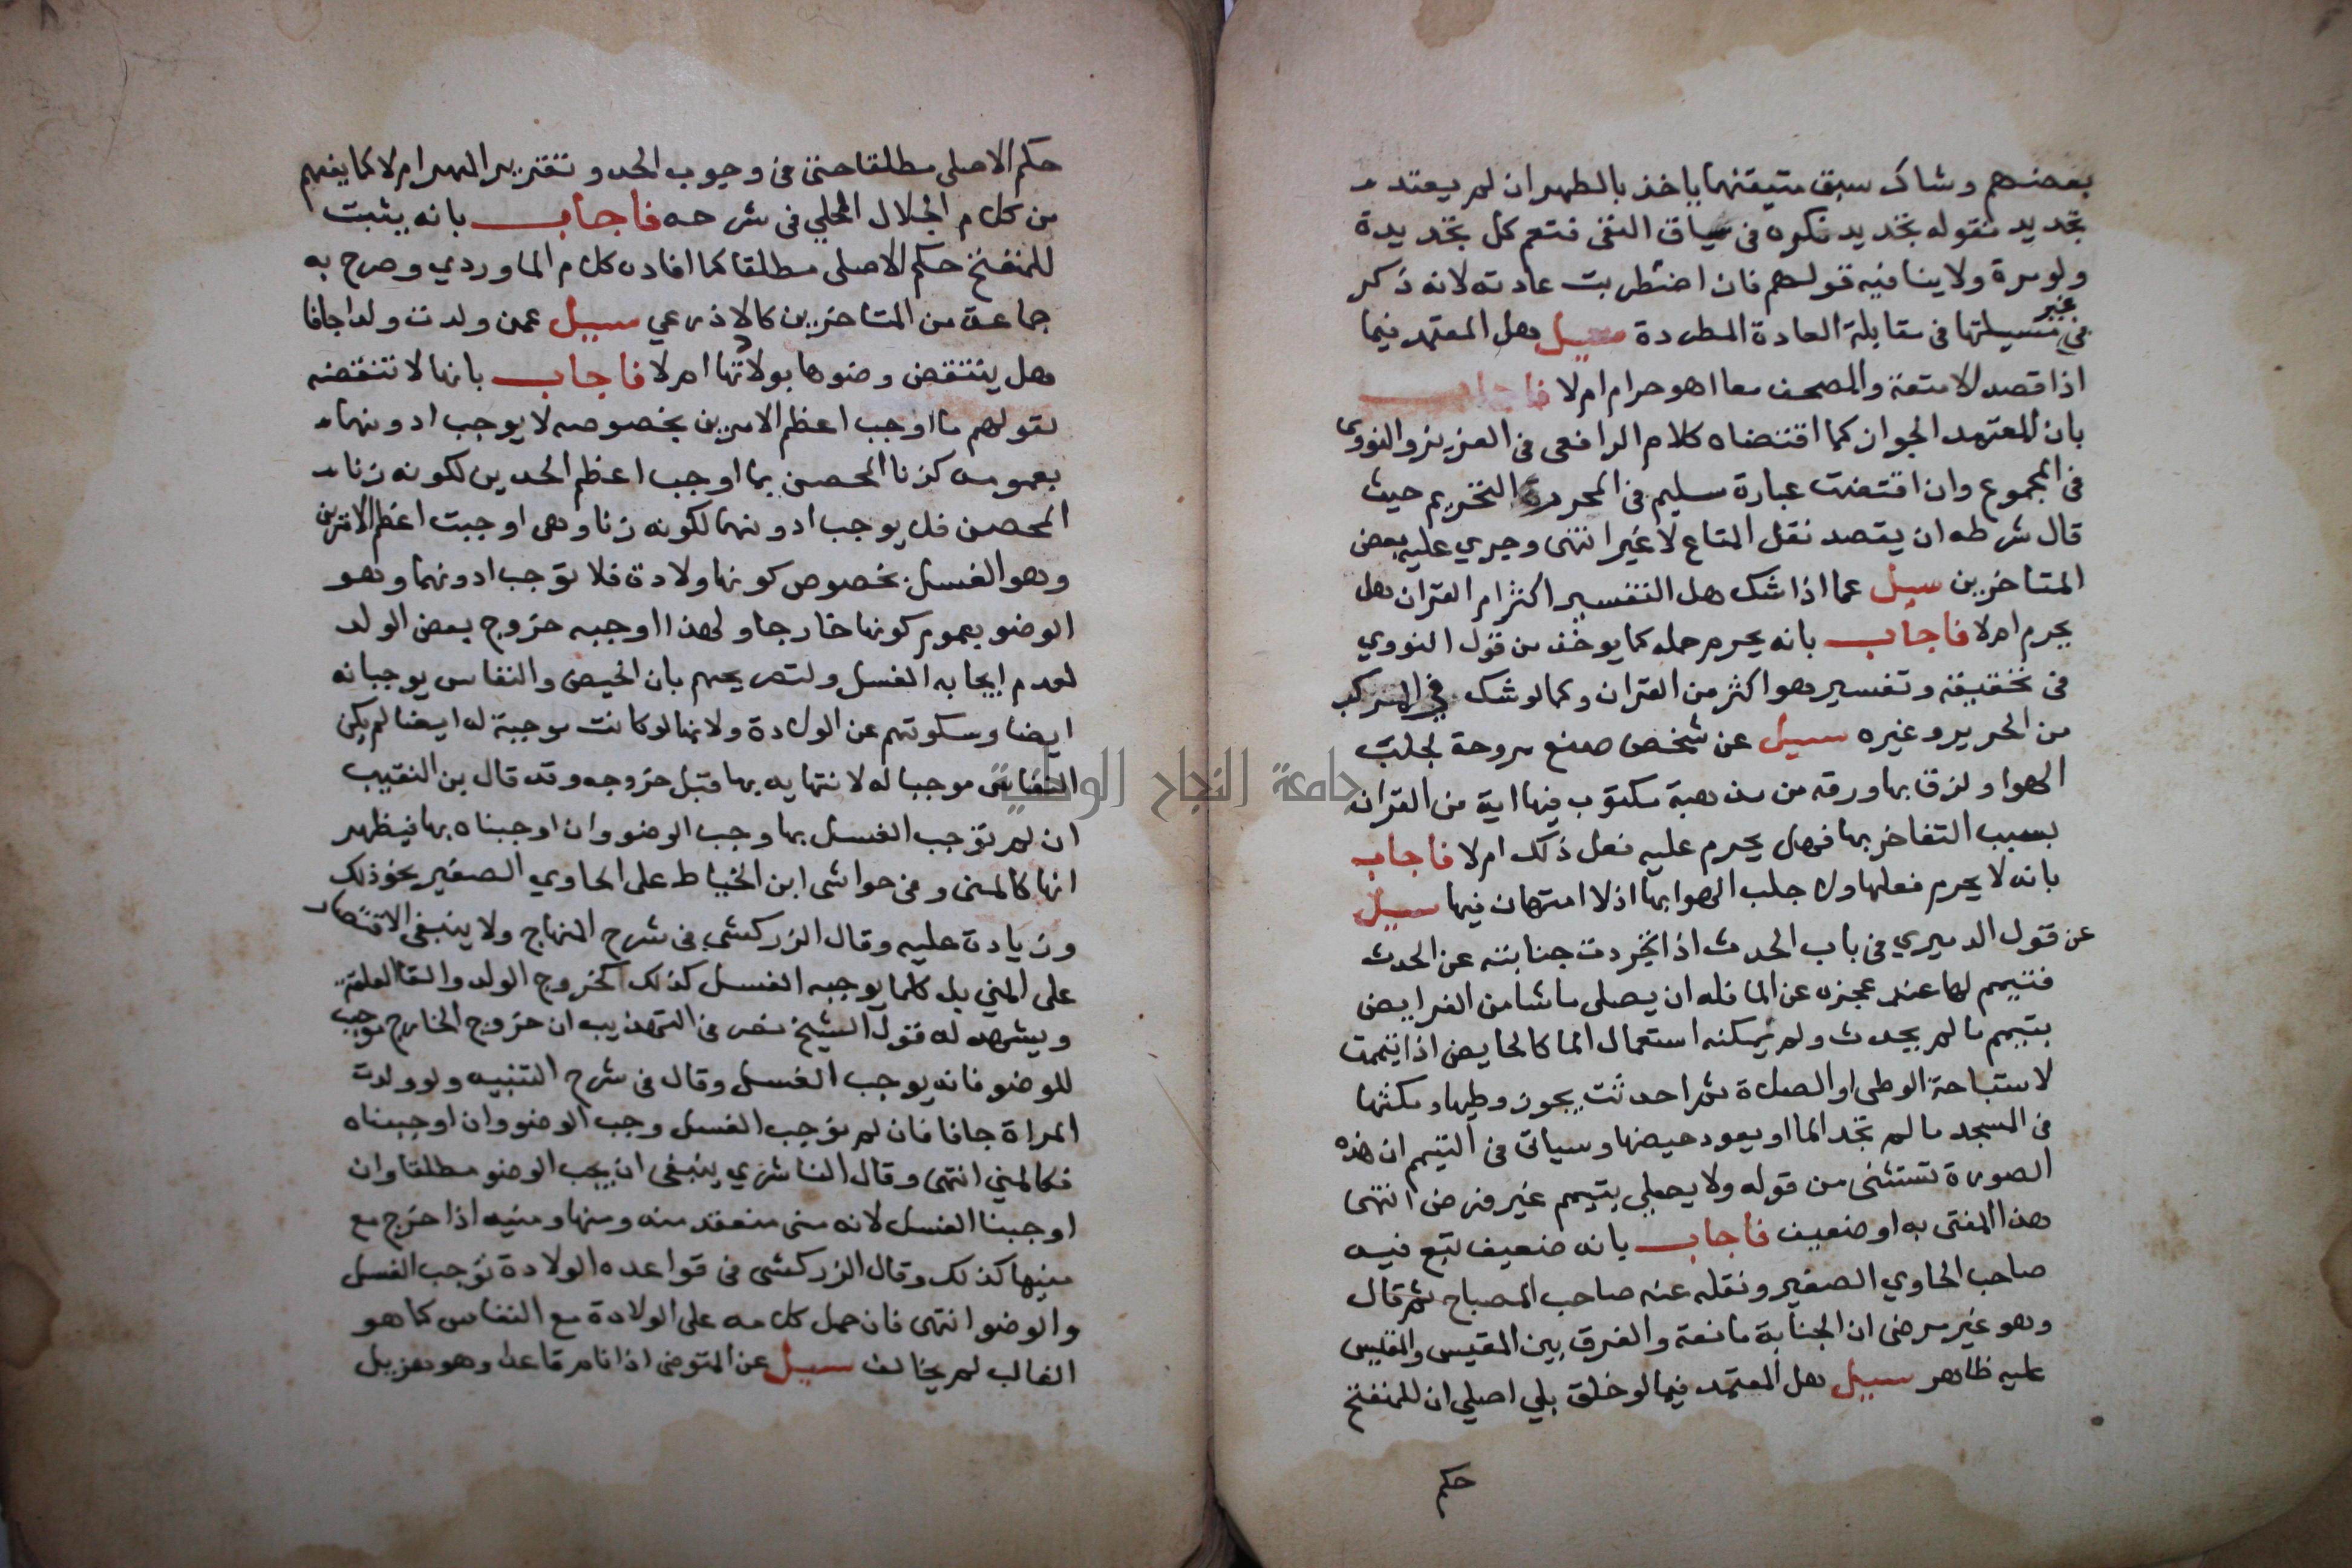 بعضهم وشاك سبق متيقنهما ياخذ بالطهر ان لم يعتد
تجديد فقوله تجديد نكره في سياق النفي فتعم كل تجديدة
ولو مرة ولا ينافيه قولهم فان اضطربت عادته لانه ذكر
في غير مسيلتها في مقابلة العادة المطردة سيل هل المعتمد فيما
اذا قصد الامتعة والمصحف معا اهو حرام ام لا فاجاب
بان المعتمد الجواز كما اقتضاه كلام الرافعى فى العزيز والنووى
في المجموع وان اقتضت عبارة سليم في المجرد التحريم حيث
قال شرطه ان يقصد نقل المتاع لا غير انتهى وجري عليه بعض
المتاخرين سيل عما اذا شك هل التفسير اكثر ام القران هل
يحرم ام لا فاجاب بانه يحرم حمله كما يوخذ من قول النووي
في تحقيقه وتفسير هو اكثر من القران وكما لو شك في المركب
من الحرير وغيره سيل عن شخص صنع مروحة لجلب
الهوا ولزق بها ورقه من مذهبة مكتوب فيها اية من القران
بسبب التفاخر بها فهل يحرم عليه فعل ذلك ام لا فاجاب
بانه لا يحرم فعلها ولا جلب الهوا بها اذ لا امتهان فيها سيل
عن قول الدميري في باب الحدث اذا تجردت جنابته عن الحدث
فتيمم لها عند عجزه عن الما فله ان يصلى ما شا من الفرايض
بتيمم ما لم يحدث ولم يمكنه استعمال الما كالحايض اذا تيممت
لاستباحة الوطى او الصلاة ثم احدثت يجوز وطيها ومكثها
في المسجد ما لم تجد الما او يعود حيضها وسياتى في التيمم ان هذه
الصورة تستثنى من قوله ولا يصلى بتيمم غير فرض انتهى
هذا المفتى به او ضعيف فاجاب بانه ضعيف تبع فيه
صاحب الحاوي الصغير ونقله عنه صاحب المصباح ثم قال
وهو غير مرضى ان الجنابة مانعة والفرق بين المقيس والمقيس
عليه ظاهر سيل هل المعتمد فيما لو خلق بلي اصلى ان للمنفتح
حكم
حكم الاصلى مطلقا حتى في وجوب الحد وتقرير المهر ام لا كما يفهم
من كلام الجلال المحلي في شرحه فاجاب بانه يثبت
للمنفتح حكم الاصلى مطلقا كما افاده كلام الماوردي وصرح به
جماعة من المتاخرين كالاذرعي سيل عمن ولدت ولدا جافا
هل ينتقض وضوها بولادتها ام لا فاجاب بانها لا تنقضه
لقولهم ما اوجب اعظم الامرين بخصوصه لا يوجب ادونهما
بعمومه كزنا المحصن بما اوجب اعظم الحدين لكونه زنا
المحصن فلا يوجب ادونهما لكونه زنا وهى اوجبت اعظم الامرين
وهو الغسل بخصوص كونها ولادة فلا توجب ادونهما وهو
الوضو بعموم كونها خارجا ولهذا اوجبه خروج بعض الولد
لعدم ايجابه الغسل ولتصريحهم بان الحيض والنفاس يوجبانه
ايضا وسكوتهم عن الولادة ولانها لو كانت موجبة له ايضا لم يكن
النفاس موجبا له لانتهايه بها قبل خروجه وقد قال بن النقيب
ان لم توجب الغسل بها وجب الوضو وان اوجبناه بها فيظهر
انها كالمنى وفى حواشى ابن الخياط على الحاوي الصغير نحو ذلك
وزيادة عليه وقال الزركشي في شرح المنهاج ولا ينبغى الاقتصار
على المني بل كلما يوجبه الغسل كذلك كخروج الولد والقا العلقة
ويشهد له قول الشيخ نصر في التهذيب ان خروج الخارج موجب
للوضو فانه يوجب الغسل وقال في شرح التنبيه ولو ولدت
المراة جافا فان لم نوجب الغسل وجب الوضو وان اوجبناه
فكالمني انتهى وقال الناشري ينبغى ان يجب الوضو مطلقا وان
اوجبنا الغسل لانه منى منعقد منه ومنها ومنيه اذا خرج مع
منيها كذلك وقال الزركشى في قواعده الولادة توجب الغسل
والوضو انتهى فان حمل كلامه على الولادة مع النفاس كما هو
الغالب لم يخالف سيل عن المتوضى اذا نام قاعدا وهو هزيل
جامعة النجاح الوطنية